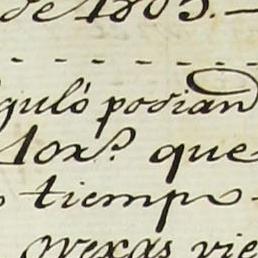 de 1803.
guló podian
10x.ˢ que
tiempo
ovexas vie